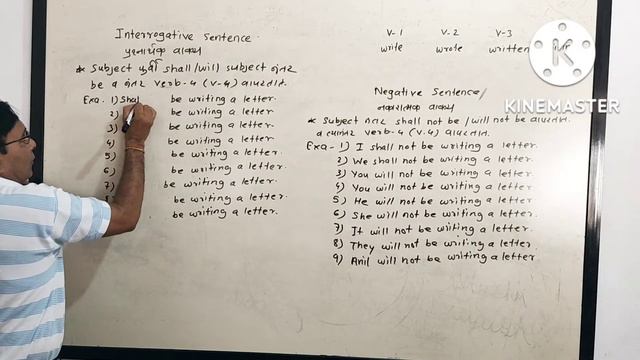 Interrogative sentence.
પ્રશ્નાર્થક વાક્ય
* Subject પૂર્વે shall/will subject બાદ
be a બાદ verb-4 (v-4) વાપરવા.
Exa. 1) Shal be writing a letter.
2) be writing a letter
3) be writing a letter.
4) be writing a letter.
5) be writing a letter.
6) be writing a letter.
7) be writing a letter.
be writing a letter.
be writing a letter.
V-1 V-2 V-3
write wrote written
Negative Sentence/
નકારાત્મક વાક્ય
* Subject બાદ shall not be / will not be વાપરવા.
verb-4 (v.4) વાપરવા.
Exa - 1) I shall not be writing a letter.
2) We shall not be writing a letter.
3) You will not be writing a letter.
4) You will not be writing a letter.
5) He will not be writing a letter.
6) She will not be writing a letter.
7) It will not be writing a letter.
8) They will not be writing a letter.
9) Anil will not be writing a letter.
KINEMASTER